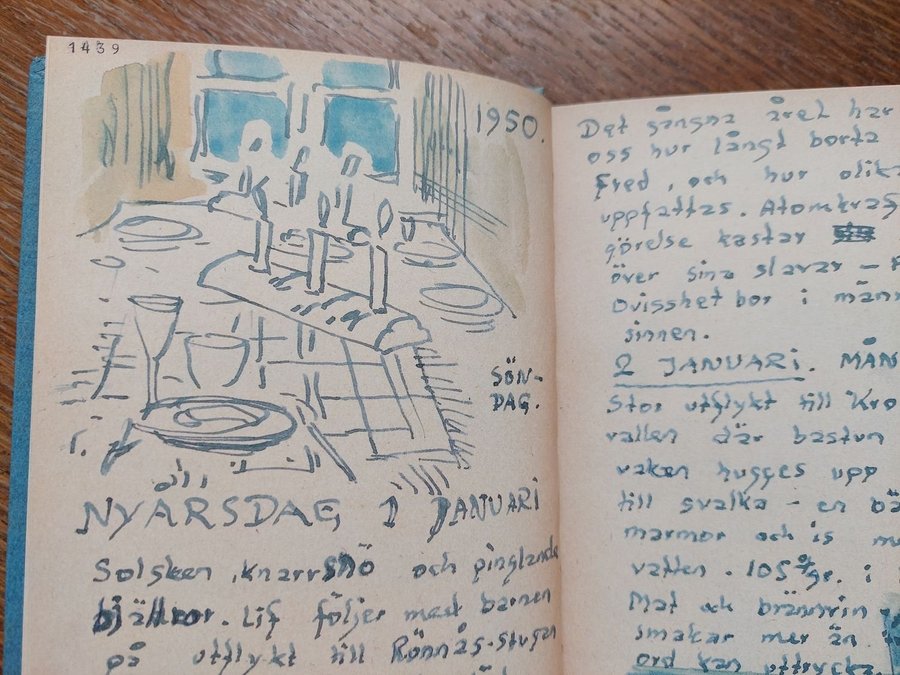 1439
1950.
SÖN-
DAG.
NYÅRSDAG 1 JANUARI
Solsken, knarrsnö och pinglande
bjällror. Lif följer med barnen
på utflykt till Rönnås-stugan
Det gångna året har
oss hur långt borta
Fred, och hur olika
uppfattas. Atomkraf
görelse kastar
över sina slavar —
Ovisshet bor i männ
sinnen.
2 JANUARI. MÅN
Stor utflykt till Kro
vallen där bastun
vaken hugges upp
till svalka – en bä
marmor och is
vatten. 105 gr. i
Mat och brännvin
smakar mer än
ord kan uttrycka.